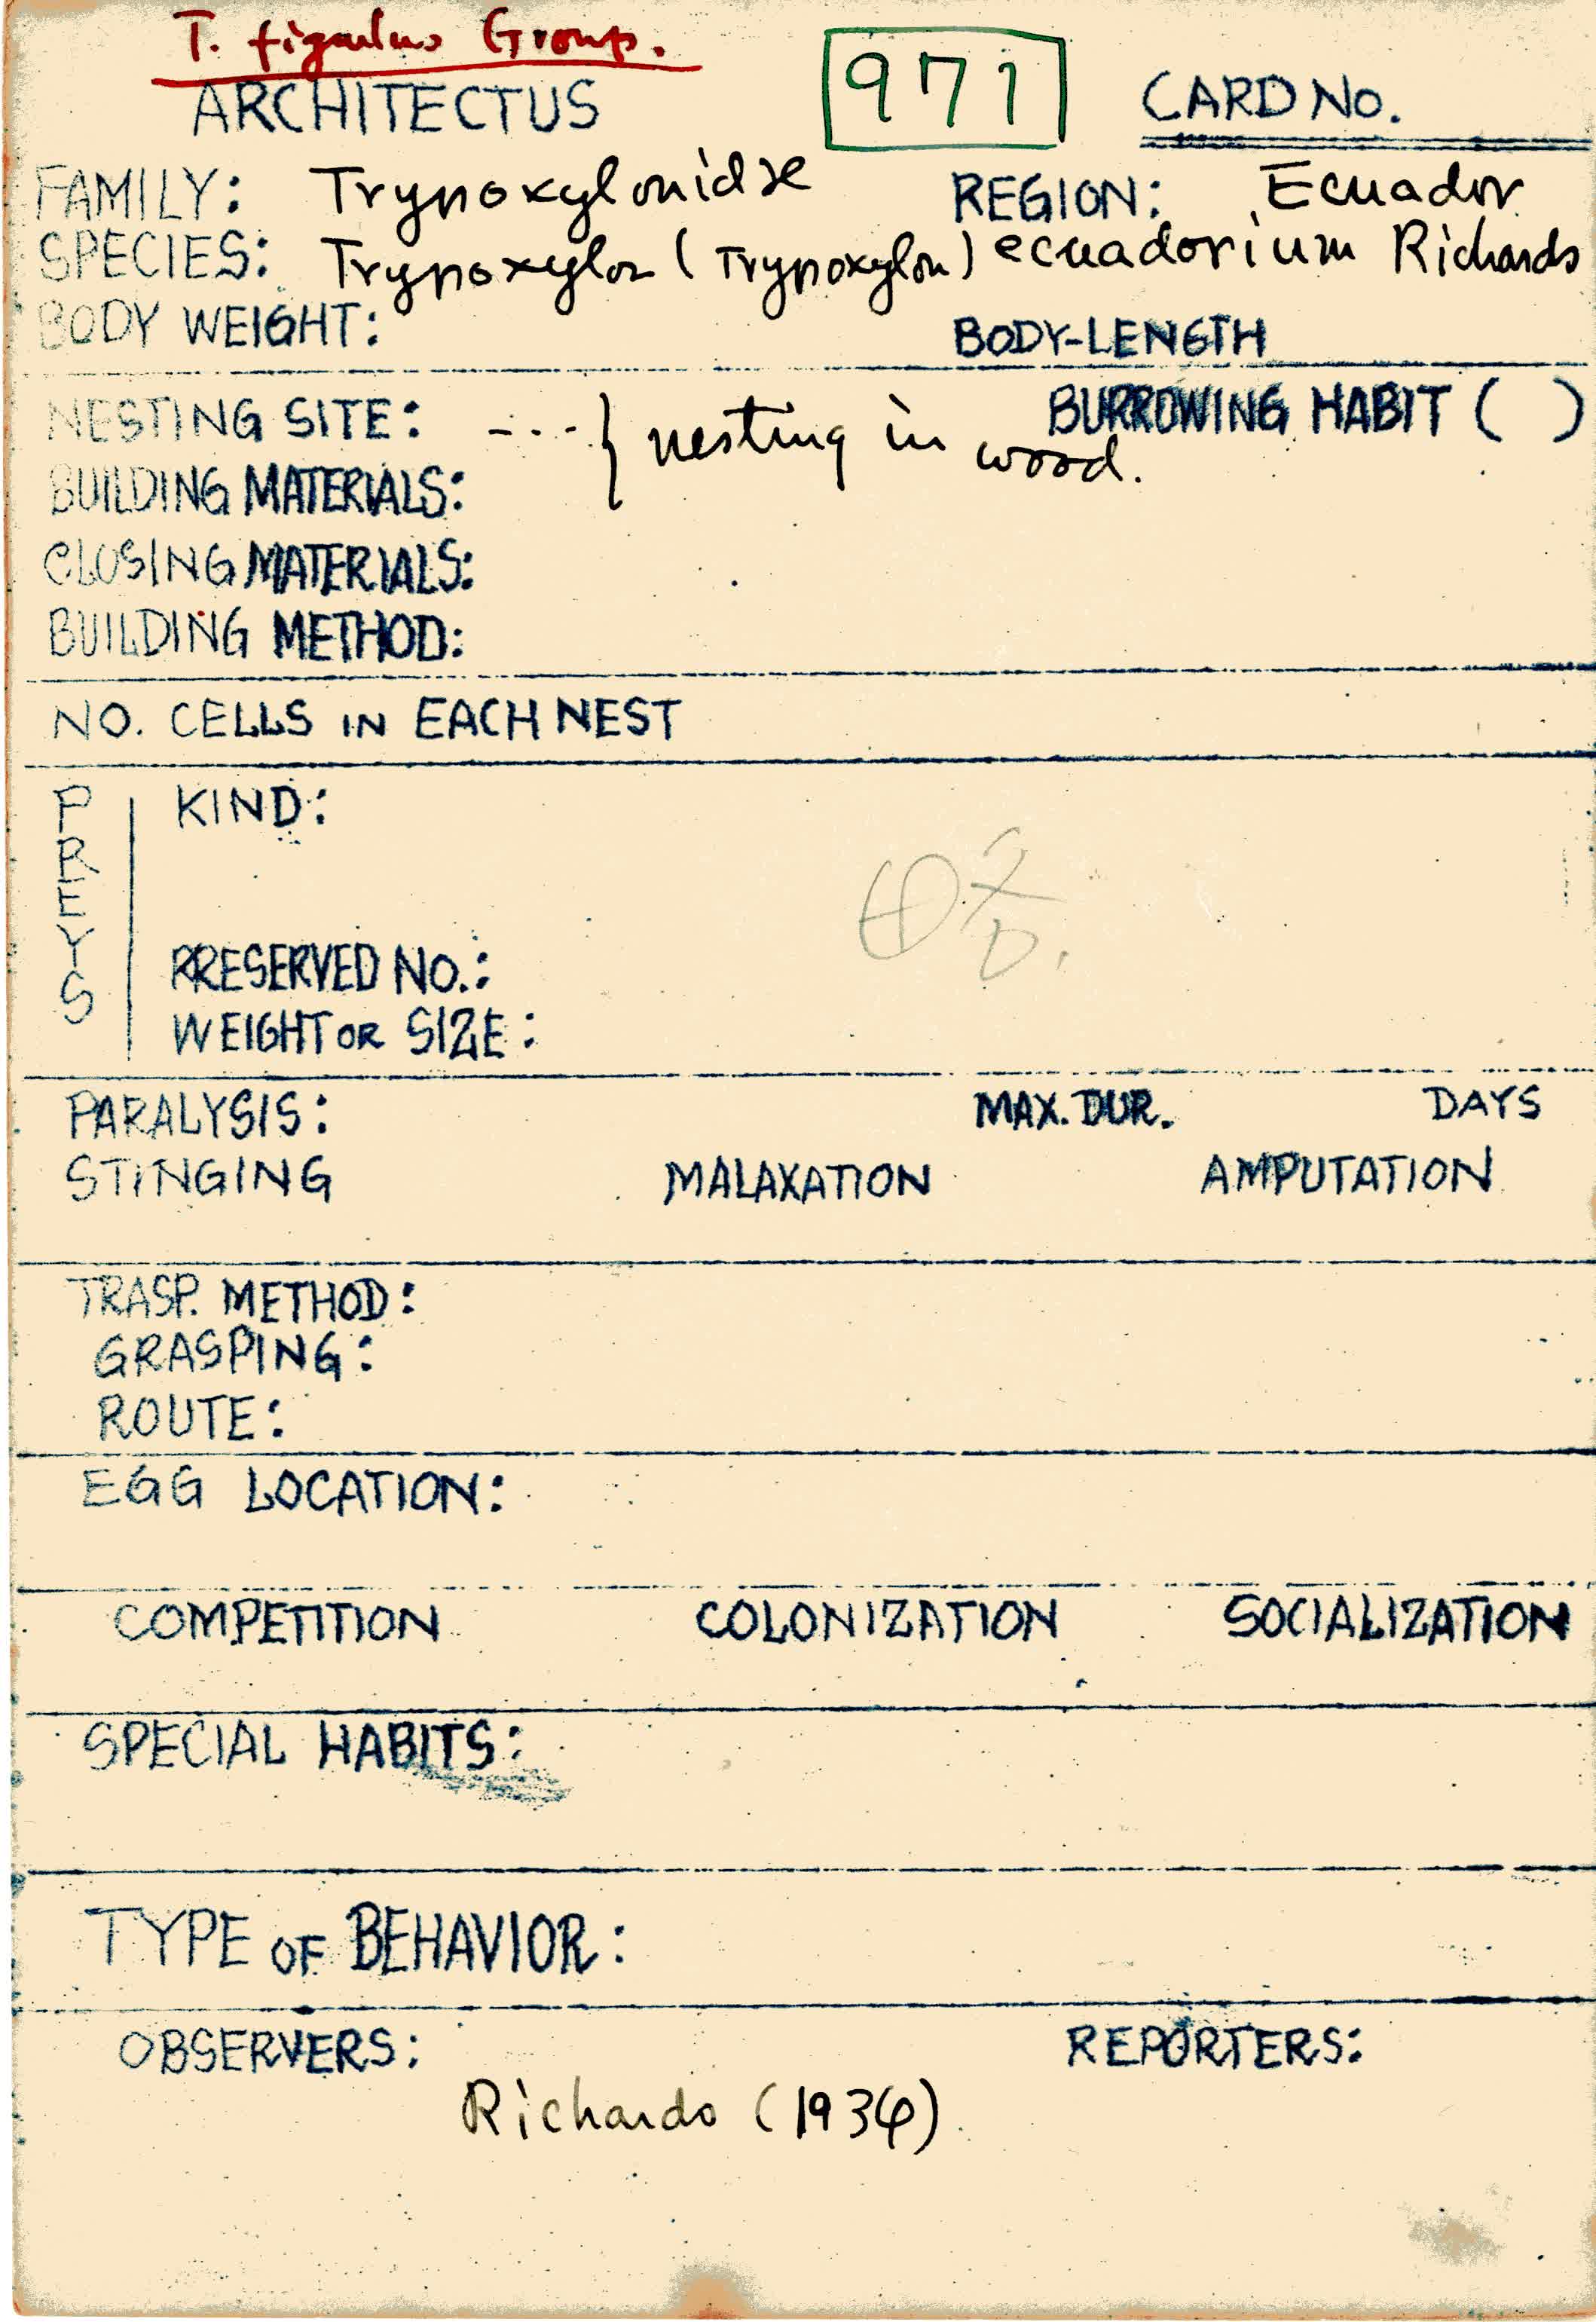 T. figulus Group.
ARCHITECTUS 971 CARD NO.
FAMILY: Trypoxylonidae REGION: Ecuador
SPECIES: Trypoxylon (Trypoxylon) ecuadorium Richards
BODY WEIGHT: BODY-LENGTH
NESTING SITE: ---} nesting in wood. BURROWING HABIT ( )
BUILDING MATERIALS:
CLOSING MATERIALS:
BUILDING METHOD:
NO. CELLS IN EACH NEST
PREYS
KIND:
PRESERVED NO.:
WEIGHT OR SIZE:
PARALYSIS: MAX. DUR. DAYS
STINGING MALAXATION AMPUTATION
TRASP. METHOD:
GRASPING:
ROUTE:
EGG LOCATION:
COMPETITION COLONIZATION SOCIALIZATION
SPECIAL HABITS:
TYPE OF BEHAVIOR:
OBSERVERS: REPORTERS:
Richards (1934)